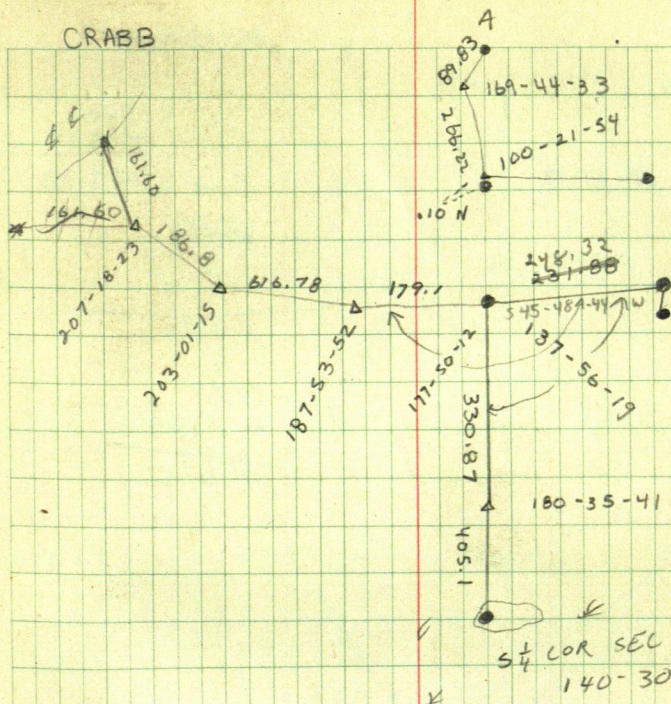 CRABB
A
89.83
169-44-33
266.22
100-21-54
.10 N
161.60
161.60
186.8
207-18-23
203-01-15
616.78
179.1
187-53-52
177-50-12
248.32
231.88
S45-48-44W
137-56-19
330.87
180-35-41
405.1
S 1/4 COR SEC
140-30